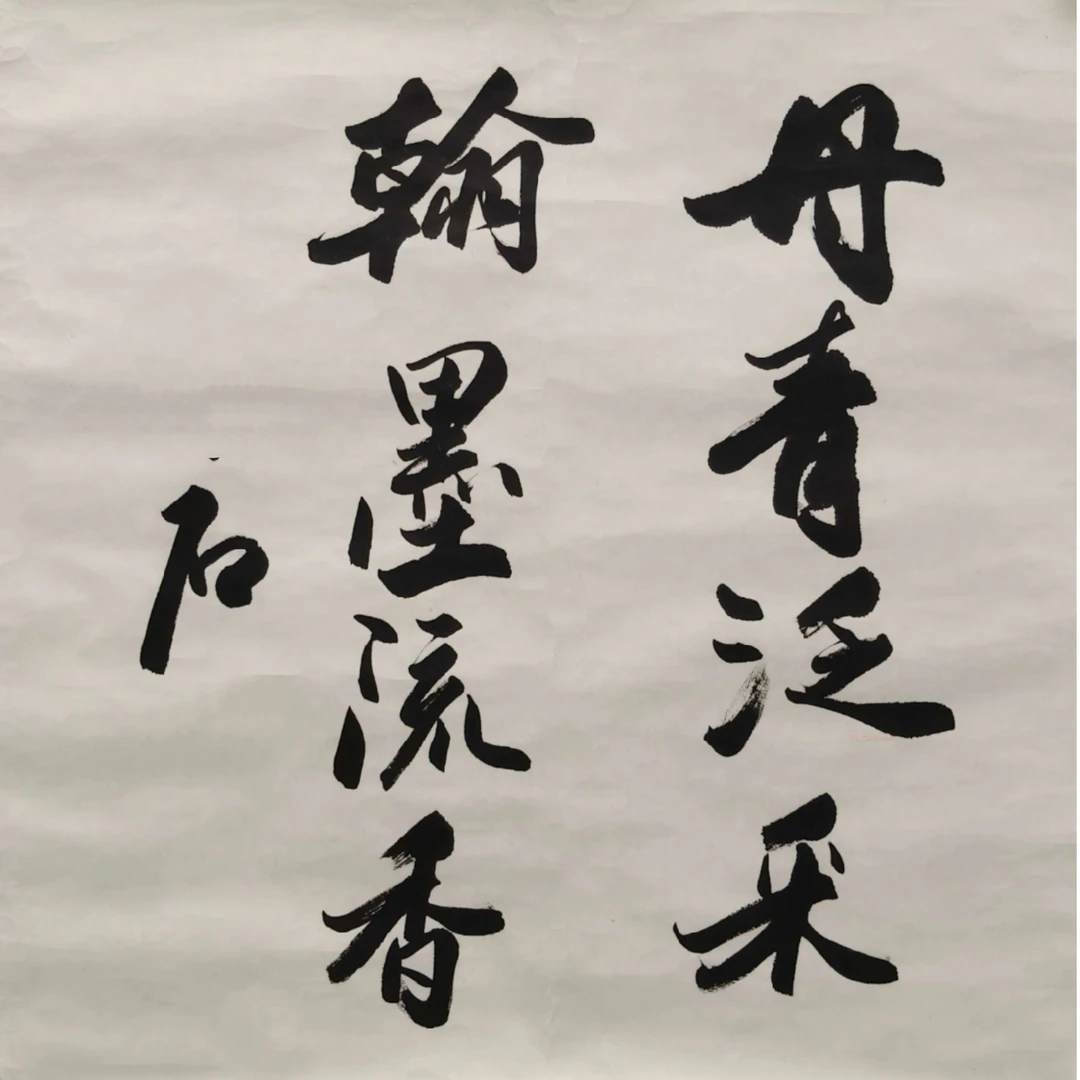 丹青泛采
翰墨流香
石